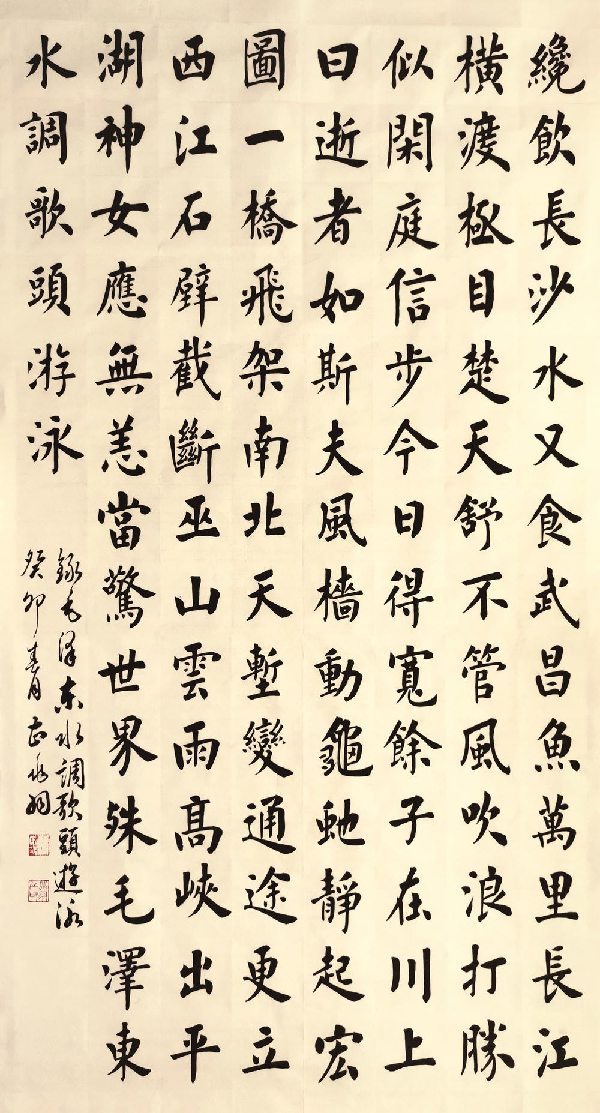 纔飲長沙水又食武昌魚萬里長江
橫渡極目楚天舒不管風吹浪打勝
似閑庭信步今日得寬餘子在川上
曰逝者如斯夫風檣動龜虵靜起宏
圖一橋飛架南北天塹變通途更立
西江石壁截斷巫山雲雨髙峽出平
湖神女應無恙當驚世界殊毛澤東
水調歌頭游泳
錄毛澤东水調歌頭遊泳
癸卯春月